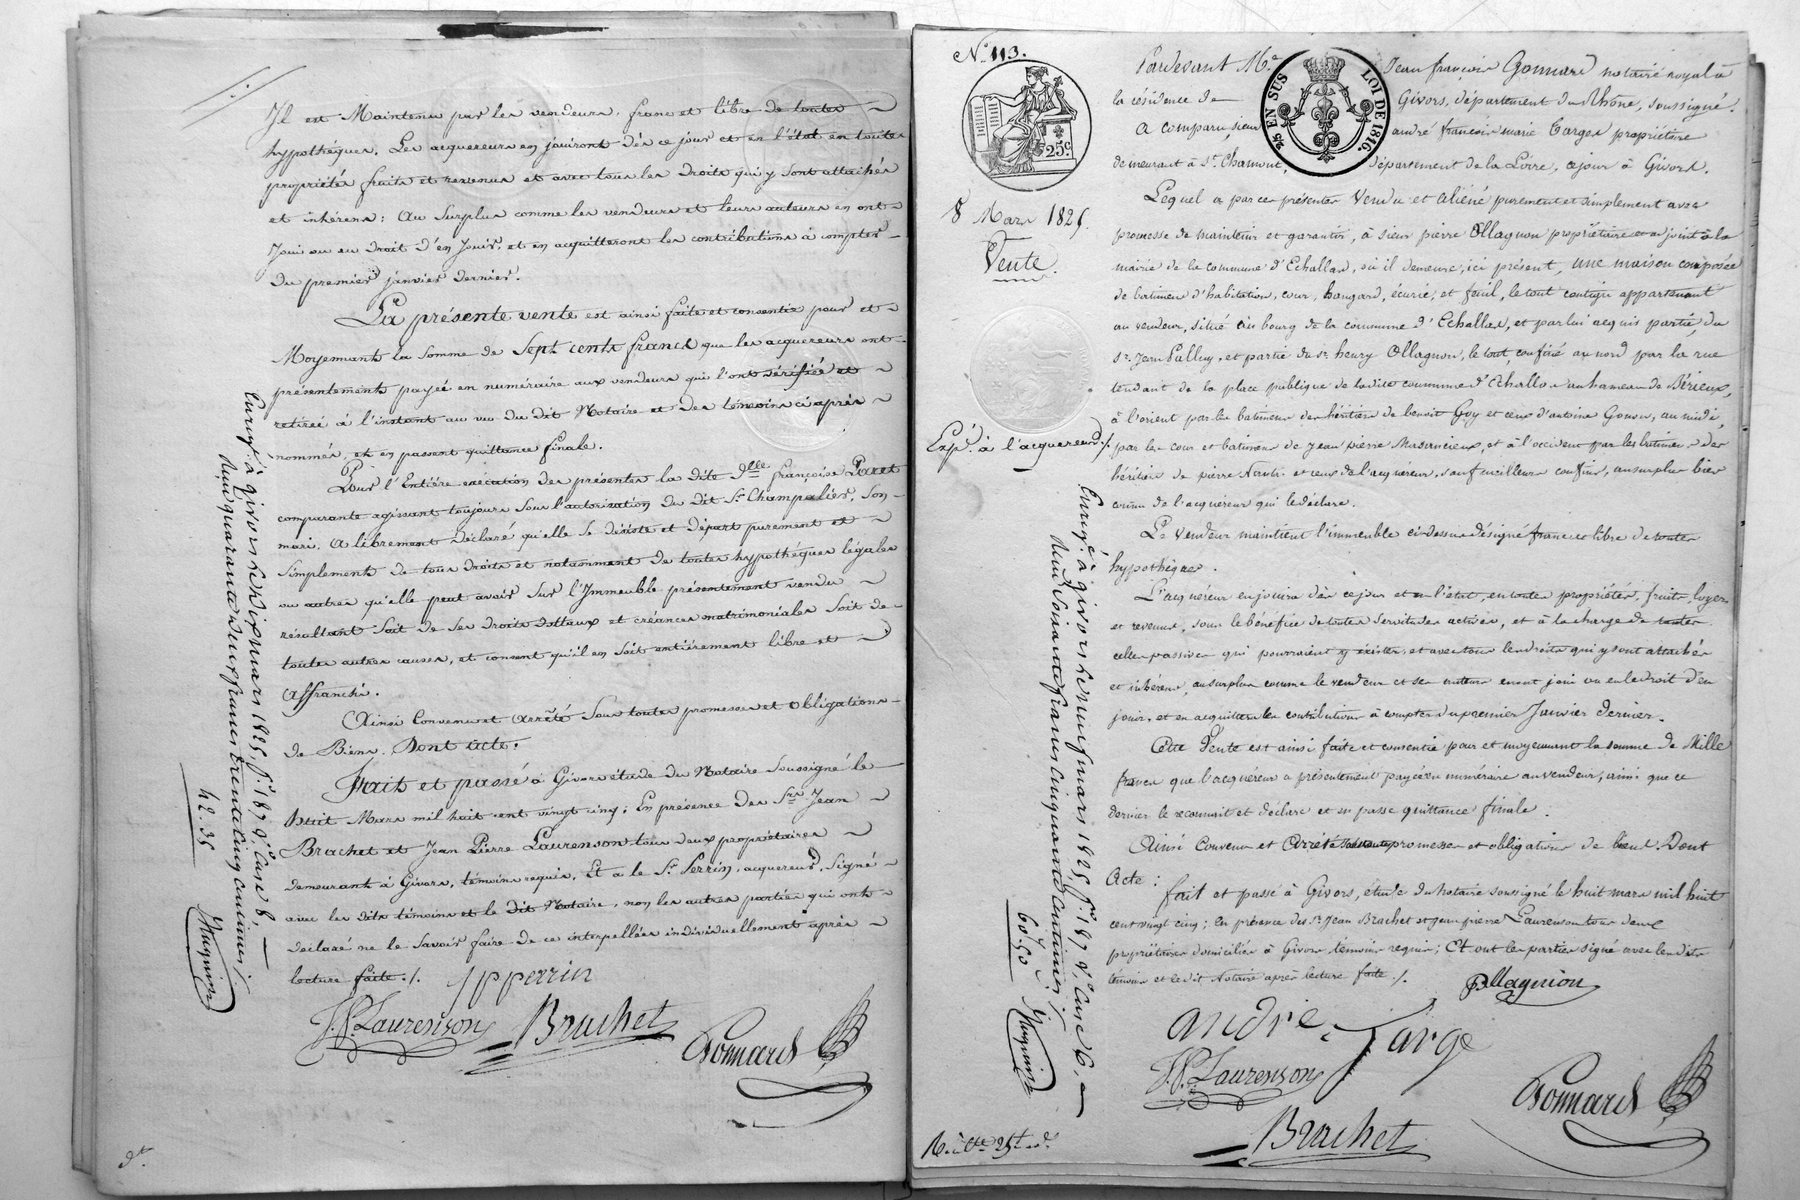 Il est Maintenu par les vendeurs, franc et libre de toutes
hypothèques. Les acquereurs en jouiront dès ce jour et en l'état, en toutes
propriétés fruits et revenus et avec tous les droits qui y sont attachés
et inhérens: Au surplus comme les vendeurs et leurs auteurs en ont
Joui ou eu droit d'en Jouir, et en acquitteront les contributions à compter
du premier janvier dernier.
La présente vente est ainsi faite et consentie pour et
Moyennant la Somme de Sept cents francs que les acquereurs ont
présentement payée en numéraire aux vendeurs qui l'ont vérifiée et
retirée à l'instant au vu du dit Notaire et des témoins ci après
nommés, et en passent quittance finale.
Pour l'Entière exécution des présentes la dite Dlle françoise Paret
comparante agissant toujours sous l'autorisation du dit Sr. Champalier, Son
mari. A librement déclaré qu'elle se désiste et départ purement et
Simplement de tous droits et notamment de toutes hypothèques légales
ou autres qu'elle peut avoir sur l'Immeuble présentement vendu
résultant Soit de Ses droits dottaux et créances matrimoniales Soit de
toutes autres causes, et consent qu'il en Soit entièrement libre et
affranchi.
Ainsi Convenu et Arrêté Sous toutes promesses et obligations
de Biens. Dont Acte.
Fait et passé à Givors étude du Notaire Soussigné le
huit Mars mil huit cent vingt cinq; En présence des Srs. Jean
Brachet et Jean Pierre Laurenson tous deux propriétaires
demeurant à Givors, témoins requis, Et a le Sr. Perrin, acquereur, Signé
avec les dits témoins et le dit Notaire, non les autres parties qui ont
déclaré ne le Savoir faire de ce interpellées individuellement après
lecture faite./.
JP perrin
J.P. Laurenson Brachet Gonnard
Enregé. à givors le dix mars 1825, fo. 187 Vo. Case 8,
Reçu quarante deux francs trente cinq centimes /.
42.35
Nº 113.
25c
25 EN SUS LOI DE 1816.
8 Mars 1825.
Vente.
Expé. à l'acquereur /.
Pardevant Me. Jean françois Gonnard notaire royal à
la résidence de Givors, département du Rhône, soussigné.
A comparu, sieur andré françois marie Targes propriétaire
demeurant à St. Chamont, département de la Loire, ce jour à Givors.
Lequel a par ces présentes Vendu et aliéné purement et simplement avec
promesse de maintenir et garantir, à sieur pierre Ollagnon propriétaire et adjoint à la
mairie de la commune d'Echallas, où il demeure, ici présent, une maison composée
de batimens d'habitation, cour, hangard, écurie, et fenil, le tout contigu appartenant
au vendeur, situé au bourg de la commune d'Echallas, et par lui acquis partie du
sr. Jean Pallluy, et partie du sr. henry Ollagnon, le tout confiné au nord par la rue
tendant de la place publique de ladite commune d'Echallas au hameau de Bérieux,
à l'orient par les batimens des héritiers de benoit Guy et ceux d'antoine Gonon, au midi,
par les cour et batimens de Jean pierre et à l'occident par les batimens des
héritiers de pierre et ceux de l'acquéreur, sauf meilleurs confins, au surplus bien
connu de l'acquéreur qui le déclare.
Le Vendeur maintient l'immeuble ci dessus désigné franc et libre de toutes
hypothèques.
L'acquéreur en jouira dès ce jour et en l'état, en toutes propriétés, fruits, loyers
et revenus, sous le bénéfice de toutes servitudes actives, et à la charge de toutes
celles passives qui pourraient y exister, et avec tous les droits qui y sont attachés
et inhérens, au surplus comme le vendeur et ses auteurs en ont joui ou eu le droit d'en
jouir, et en acquittera les contributions à compter du premier Janvier dernier.
Cette Vente est ainsi faite et consentie pour et moyennant la somme de Mille
francs que l'acquéreur a présentement payée en numéraire au vendeur, ainsi que ce
dernier le reconnait et déclare et en passe quittance finale.
Ainsi Convenu et Arrêté sous toutes promesses et obligations de biens. Dont
Acte:
fait et passé à Givors, étude du notaire soussigné le huit mars mil huit
cent vingt cinq; en présence des srs. Jean Brachet et Jean pierre Laurenson tous deux
propriétaires domiciliés à Givors, témoins requis; Et ont les parties signé avec les dits
témoins et le dit Notaire après lecture faite /.
P Ollagnion
andré Targe
J.P. Laurenson Gonnard
Brachet
Enregé. à givors le neuf mars 1825, fo. 187 Vo. Case 6,
Reçu Soixante francs cinquante centimes /.
60.50